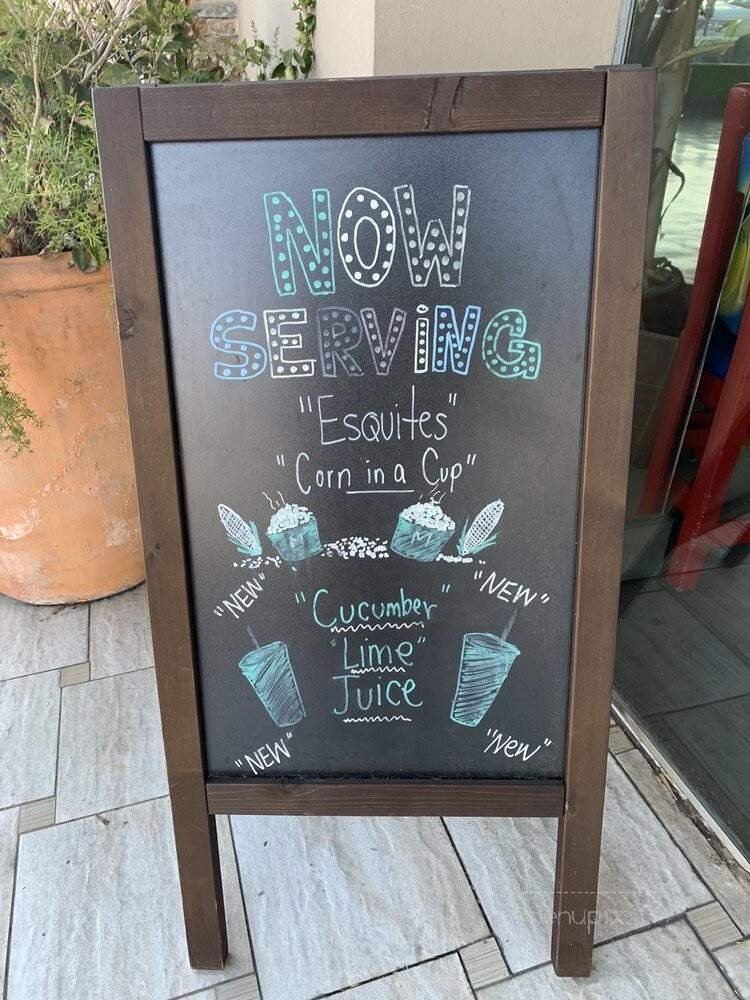 NOW
SERVING
"Esquites"
"Corn in a Cup"
M M
"NEW" "NEW"
"Cucumber"
"Lime"
Juice
"NEW" "New"
menupix